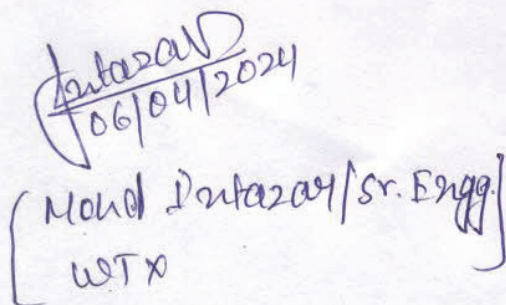 Intazar
06/04/2024
[Mohd Intazar/Sr. Engg.
WTX]